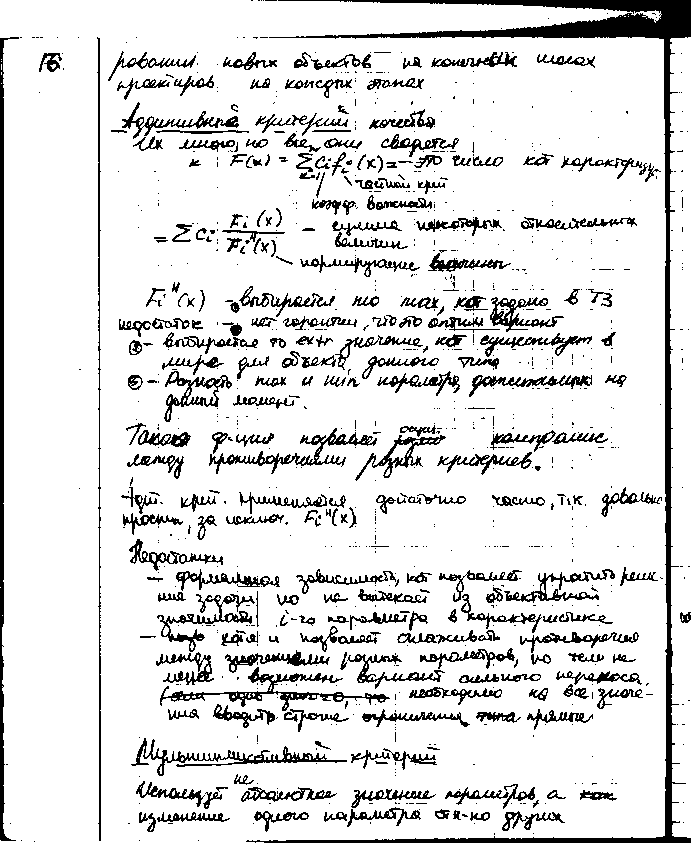 16
рования новых объектов на конечных шагах
проектиров на каждых этапах
Аддитивный критерий качества
Их много, но все они сводятся
к F(x) = Σ Ci fi (x) = – это число кот характериз.
частный крит
коэфф. важности
= Σ Ci Fi (x) / Fiᴴ(x) – сумма некоторых относительных
величин
нормирующие величины
Fiᴴ(x) – выбирается то max, кот задано в ТЗ
недостаток – нет гарантии, что это оптим вариант
② – выбирается то extr значение, кот существует в
мире для объекта данного типа
③ – Разность max и min параметра, достижимых на
данный момент.
Такая ф-ция позволяет осущ. компромис
между противоречиями разных критериев.
Адт. крит. применяется достаточно часто, т.к. довольно
прост, за исключ. Fiᴴ(x)
Недостатки
– формальная зависимость, кот позволяет упростить реше-
ние задачи но не вытекает из объективной
значимости i-го параметра в характеристике
– хотя и позволяет сглаживать противоречия
между значениями разных параметров, но тем не
менее возможен вариант сильного перекоса.
необходимо на все значе-
ния вводить строгие ограничения прямые
Мультипликативный критерий
Использует не абсолютное значение параметров, а
изменение одного параметра отн-но других